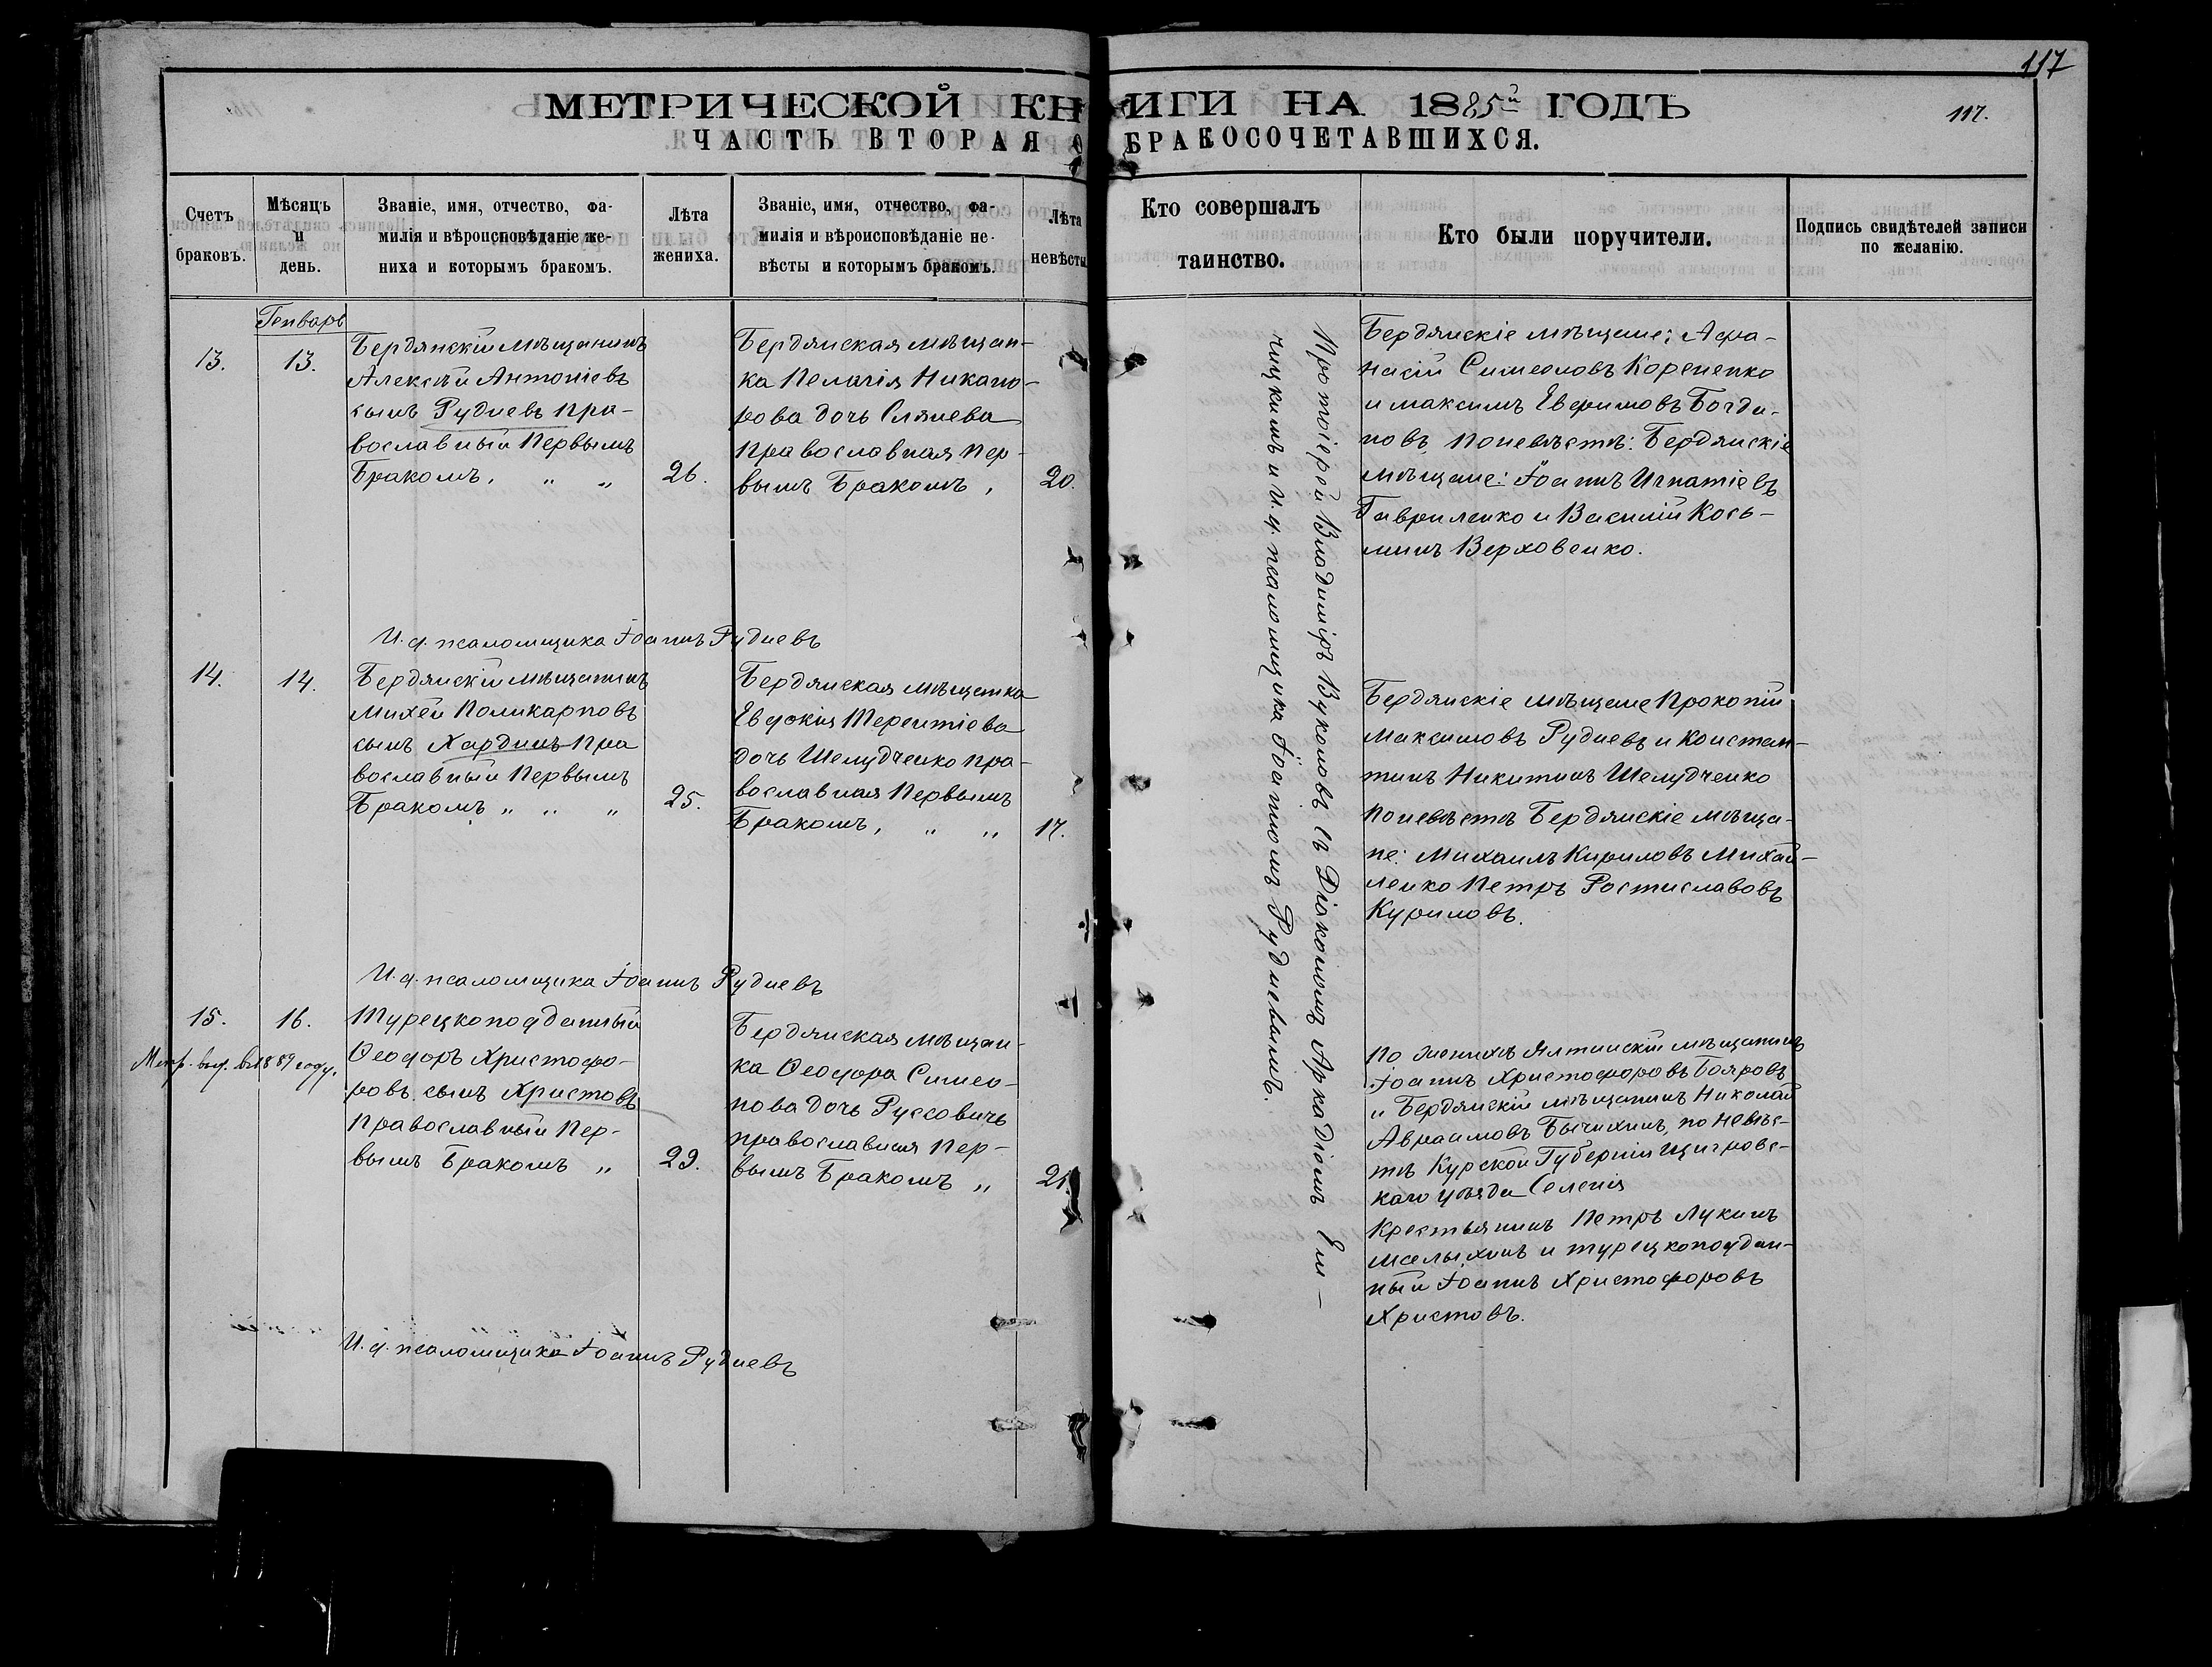 117
МЕТРИЧЕСКОЙ КНИГИ НА 1885й ГОДЪ
117.
ЧАСТЬ ВТОРАЯ О БРАКОСОЧЕТАВШИХСЯ.
Счетъ
браковъ.
Мѣсяцъ
и
день.
Званіе, имя, отчество, фа-
милія и вѣроисповѣданіе же-
ниха и которымъ бракомъ.
Лѣта
жениха.
Званіе, имя, отчество, фа-
милія и вѣроисповѣданіе не-
вѣсты и которымъ бракомъ.
Лѣта
невѣсты
Кто совершалъ
таинство.
Кто были поручители.
Подпись свидѣтелей записи
по желанію.
Генварь
13.
13.
Бердянскій мѣщанинъ
Алексѣй Антоніевъ
сынъ Рудневъ пра-
вославный Первымъ
Бракомъ, „ „
26.
Бердянская мѣщан-
ка Пелагія Никано-
рова дочь Сляпева
Православная пер-
вымъ Бракомъ,
20.
Протоіерей Владиміръ Вуколовъ съ Діакономъ Аркадіемъ Ели-
чицкимъ и И. д. псаломщика Іоанномъ Рудневымъ.
Бердянскіе мѣщане: Афа-
насій Симеоновъ Корененко
и Максимъ Евфимовъ Богда-
новъ, по невѣстѣ: Бердянскіе
мѣщане: Іоаннъ Игнатіевъ
Гавриленко и Василій Кось-
минъ Верховенко.
И. д. псаломщика Іоаннъ Рудневъ
14.
14.
Бердянскій мѣщанинъ
Михей Поликарповъ
сынъ Хардинъ Пра
вославный Первымъ
Бракомъ „ „ „
25.
Бердянская мѣщанка
Евдокія Терентіева
дочь Шелудченко пра-
вославная Первымъ
Бракомъ, „ „
17.
Бердянскіе мѣщане Прокопій
Максимовъ Рудневъ и Констан-
тинъ Никитинъ Шелудченко
по невѣстѣ Бердянскіе мѣща-
не: Михаилъ Кириловъ Михай-
ленко Петръ Ростиславовъ
Куриловъ.
И. д. псаломщика Іоаннъ Рудневъ
15.
16.
Метр. выд. въ 1889 году.
Турецкоподданный
Ѳеодоръ Христофо-
ровъ сынъ Христовъ
Православный Пер-
вымъ Бракомъ „
29.
Бердянская мѣщан-
ка Ѳеодора Симео-
нова дочь Руссовичъ
православная Пер-
вымъ Бракомъ „
21.
По женихѣ Ялтинскій мѣщанинъ
Іоаннъ Христофоровъ Бояровъ
и Бердянскій мѣщанинъ Николай
Авраамовъ Бычихинъ, по невѣс-
тѣ Курской Губерніи Щигровс-
каго уѣзда Селенія
Крестьянинъ Петръ Лукинъ
и турецкоподдан-
ный Іоаннъ Христофоровъ
Христовъ.
И. д. псаломщика Іоаннъ Рудневъ